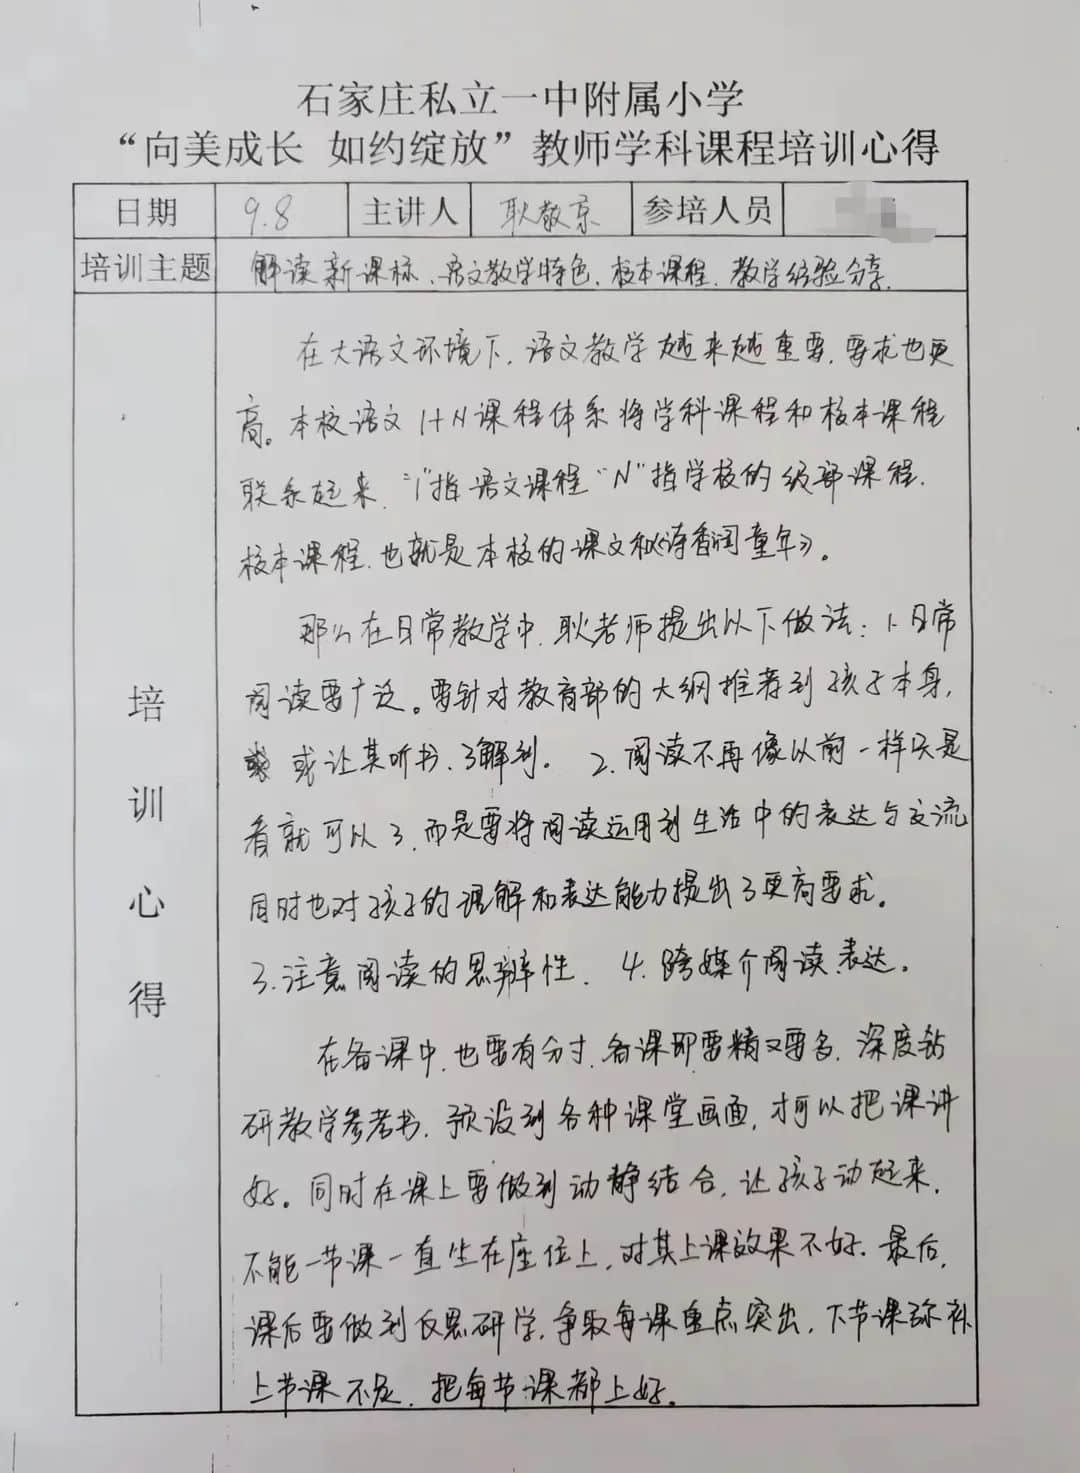 石家庄私立一中附属小学
“向美成长 如约绽放”教师学科课程培训心得
日期 9.8 主讲人 耿敬京 参培人员
培训主题 解读新课标、语文教学特色、校本课程、教学经验分享.
培训心得
在大语文环境下,语文教学越来越重要,要求也更
高。本校语文1+N课程体系将学科课程和校本课程
联系起来,“1”指语文课程“N”指学校的级部课程.
校本课程,也就是本校的课文和《诗香润童年》。
那么在日常教学中,耿老师提出以下做法:1.日常
阅读要广泛。要针对教育部的大纲推荐到孩子本身,
或让其听书、了解到。2.阅读不再像以前一样只是
看就可以了,而是要将阅读运用到生活中的表达与交流
同时也对孩子的理解和表达能力提出了更高要求。
3.注意阅读的思辨性. 4.跨媒介阅读、表达。
在备课中,也要有分寸,备课即要精又要多,深度钻
研教学参考书,预设到各种课堂画面,才可以把课讲
好。同时在课上要做到动静结合,让孩子动起来,
不能一节课一直坐在座位上,对其上课效果不好.最后,
课后要做到反思研学,争取每课重点突出,下节课弥补
上节课不足,把每节课都上好。